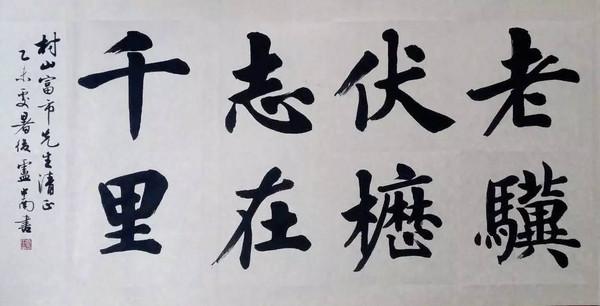 老驥
伏櫪
志在
千里
村山富市先生清正
乙未處暑後盧中南書